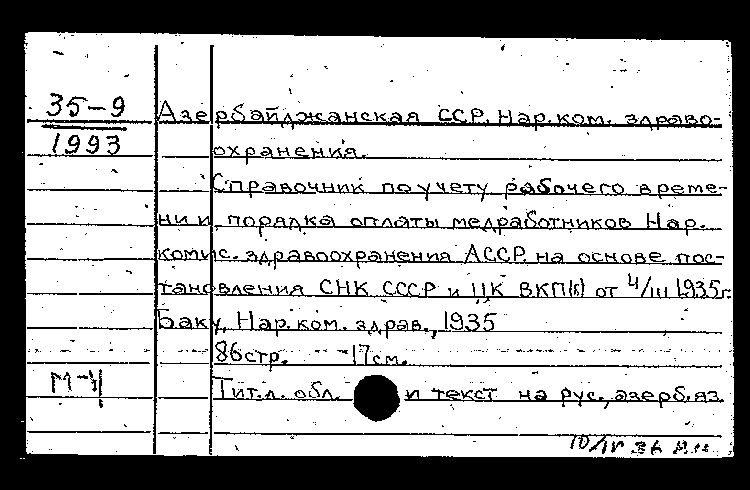 35-9
1993
Азербайджанская ССР. Нар.ком. здраво-
охранения.
Справочник по учету рабочего време-
ни и порядка оплаты медработников Нар.
комис. здравоохранения АССР на основе пос-
тановления СНК СССР и ЦК ВКП(б) от 4/III 1935г.
Баку, Нар.ком. здрав., 1935
86стр. 17см.
М-4
Тит.л. обл. и текст на рус., азерб.яз.
10/IV 36